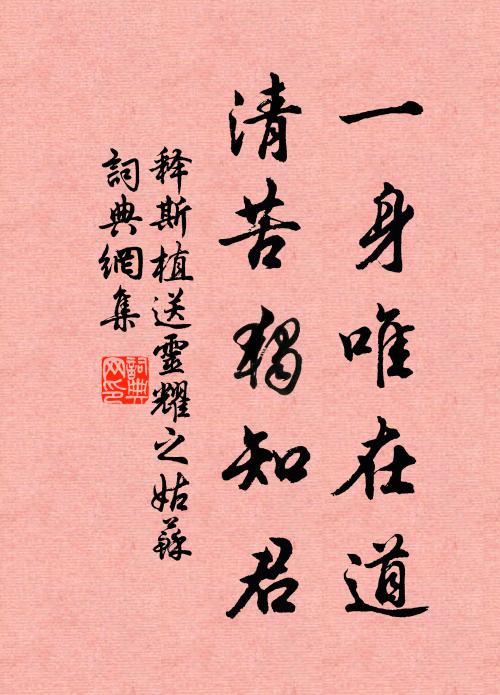 一身唯在道
清苦独知君
释斯植送靈耀之姑蘇
詞典網集
詞典网印